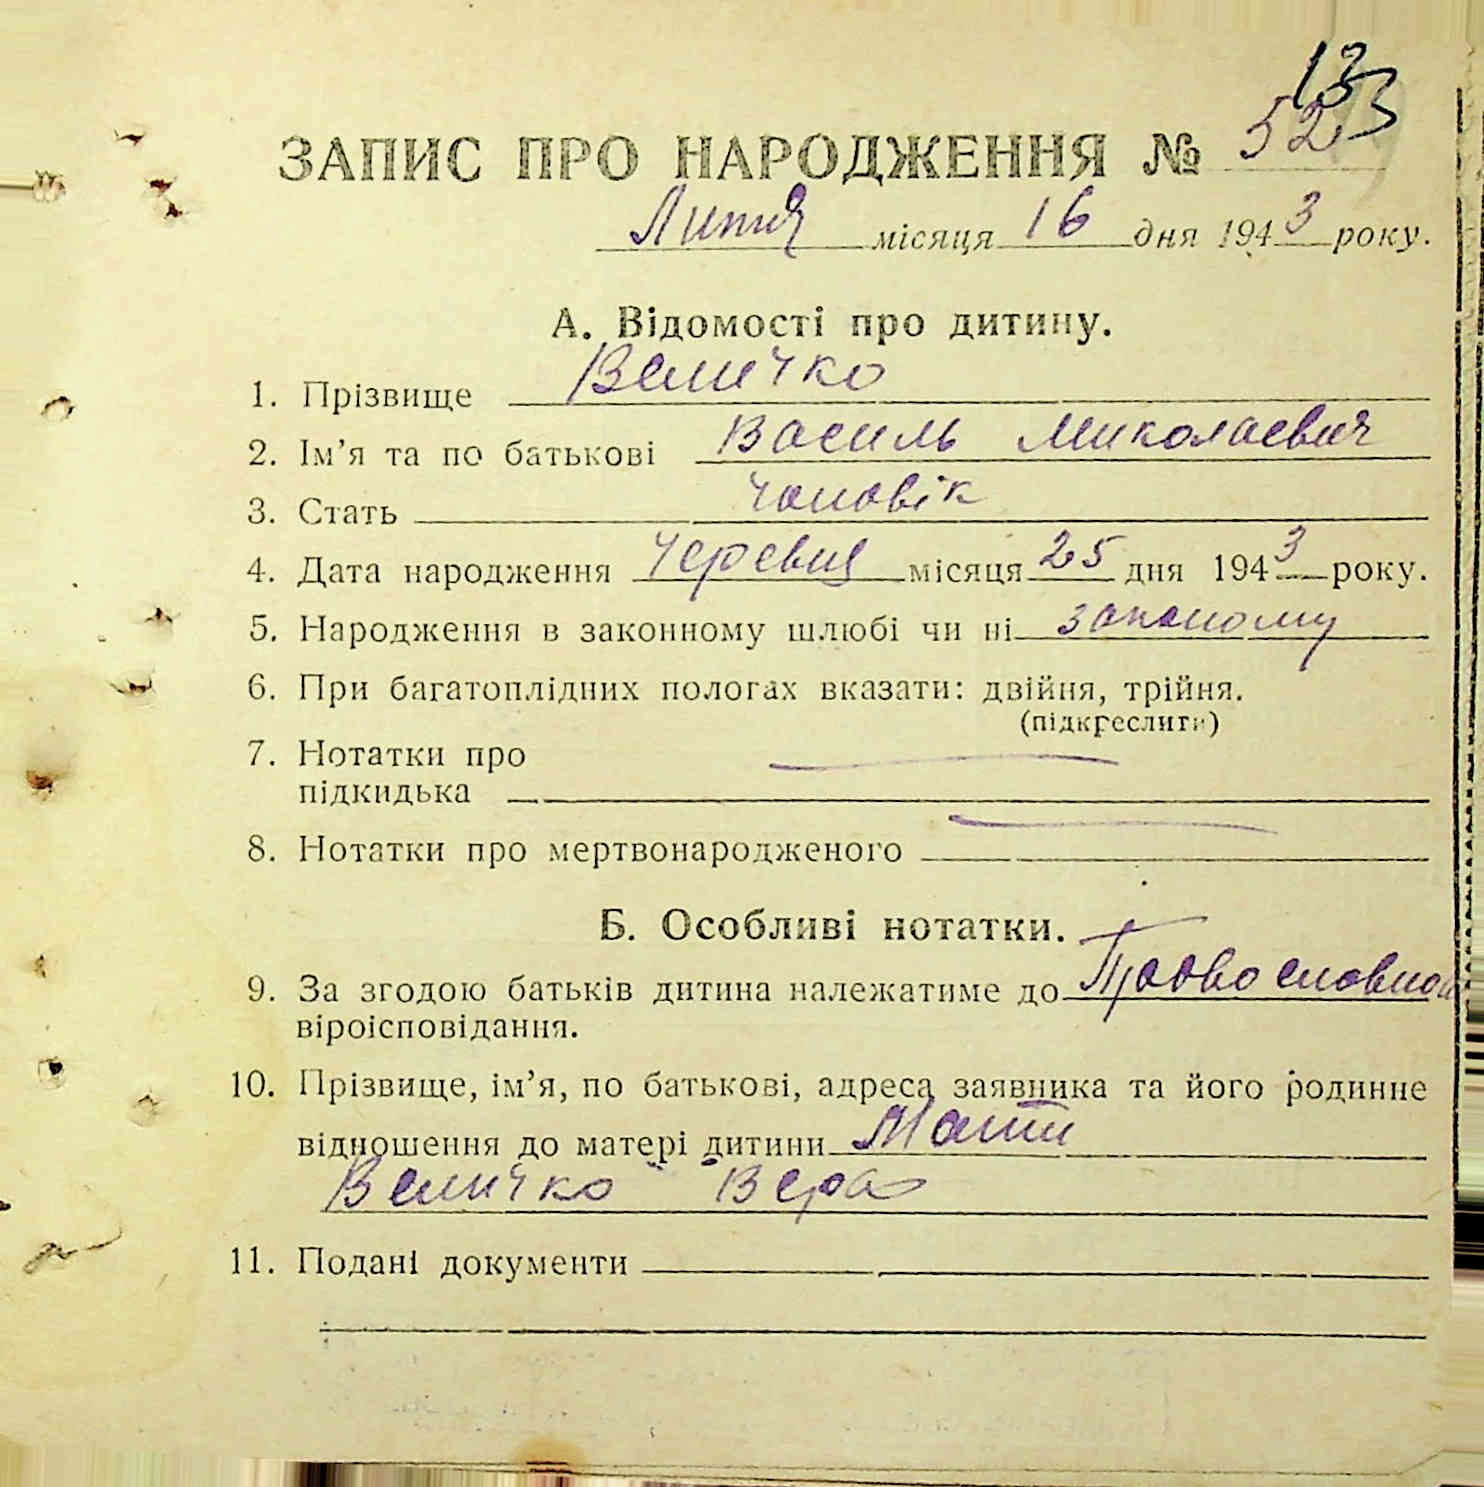 133
ЗАПИС ПРО НАРОДЖЕННЯ № 52
Липня місяця 16 дня 1943 року.
А. Відомості про дитину.
1. Прізвище Величко
2. Ім’я та по батькові Василь Миколаевич
3. Стать Чоловік
4. Дата народження Червня місяця 25 дня 1943 року.
5. Народження в законному шлюбі чи ні законому
6. При багатоплідних пологах вказати: двійня, трійня.
(підкреслити)
7. Нотатки про
підкидька
8. Нотатки про мертвонародженого
Б. Особливі нотатки.
9. За згодою батьків дитина належатиме до Православної
віроісповідання.
10. Прізвище, ім’я, по батькові, адреса заявника та його родинне
відношення до матері дитини Мати
Величко Вера
11. Подані документи